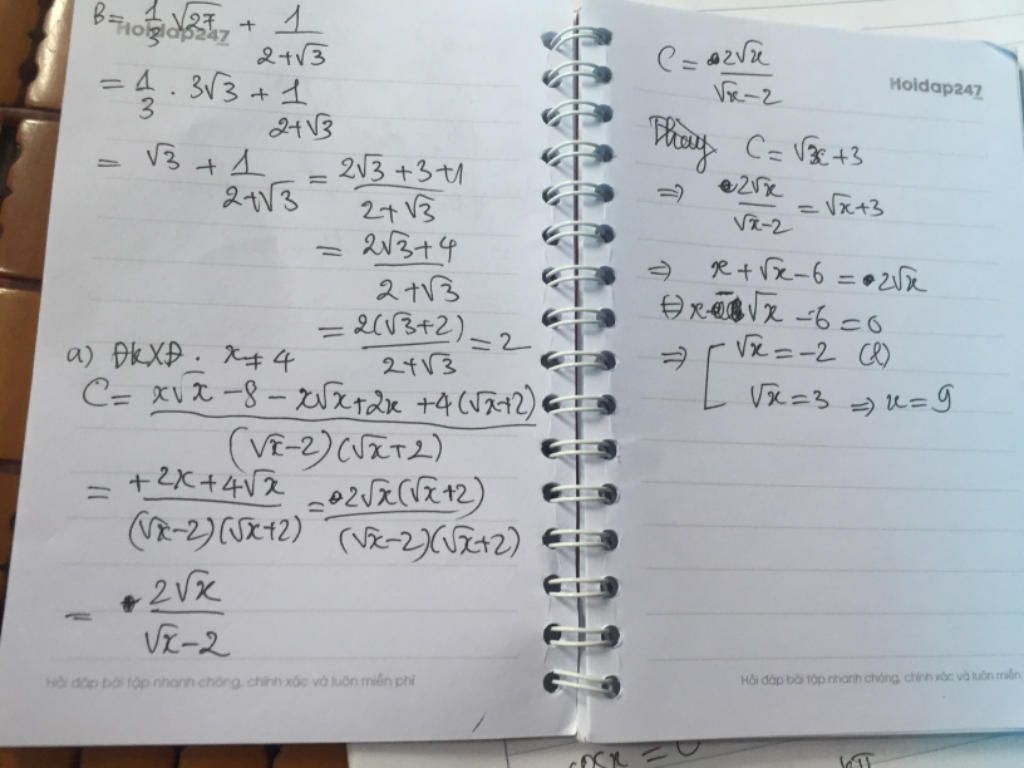 B = 1/3 √27 + 1/(2+√3)
Hoidap247
= 1/3 . 3√3 + 1/(2+√3)
= √3 + 1/(2+√3) = (2√3+3+1)/(2+√3)
= (2√3+4)/(2+√3)
= 2(√3+2)/(2+√3) = 2
a) ĐKXĐ . x ≠ 4
C = (x√x - 8 - x√x + 2x + 4(√x+2))/((√x-2)(√x+2))
= (+2x+4√x)/((√x-2)(√x+2)) = 2√x(√x+2)/((√x-2)(√x+2))
= 2√x/(√x-2)
Hỏi đáp bài tập nhanh chóng, chính xác và luôn miễn phí
C = 2√x/(√x-2)
Hoidap247
Thay C = √x+3
⇒ 2√x/(√x-2) = √x+3
⇒ x+√x-6 = 2√x
⇔ x - √x -6 = 0
⇒ [ √x = -2 (l)
√x = 3 ⇒ x = 9
Hỏi đáp bài tập nhanh chóng, chính xác và luôn miễn
cos x = 0